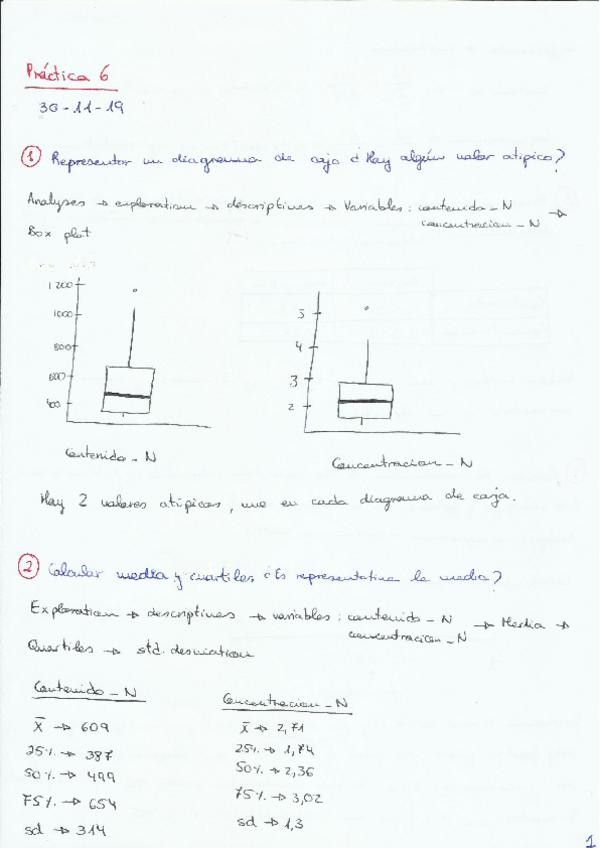 Práctica 6
30-11-19
① Representar un diagrama de caja ¿Hay algún valor atipico?
Analyses → exploration → descriptives → Variables: contenido_N →
concentracion_N
Box plot
1200
1000
800
600
400
Contenido_N
5
4
3
2
Concentracion_N
Hay 2 valores atípicos, uno en cada diagrama de caja.
② Calcular media y cuartiles ¿Es representativa la media?
Exploration → descriptives → variables: contenido_N → Media →
concentracion_N
Quartiles → std. desviation
Contenido_N
x̄ → 609
25% → 387
50% → 499
75% → 654
sd → 314
Concentracion_N
x̄ → 2,71
25% → 1,74
50% → 2,36
75% → 3,02
sd → 1,3
1